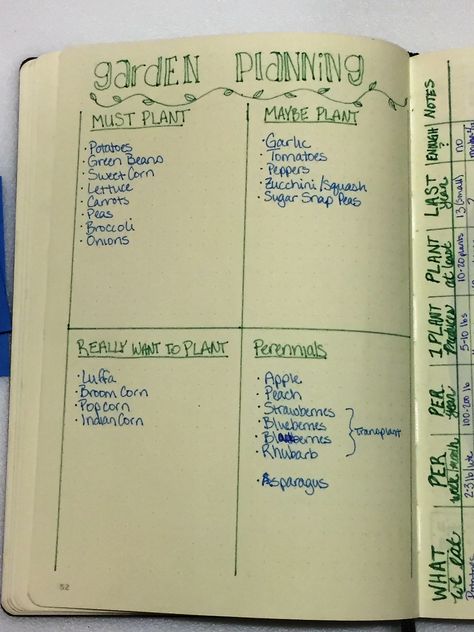 garden Planning
MUST PLANT
· Potatoes
· Green Beans
· Sweet Corn
· Lettuce
· Carrots
· Peas
· Broccoli
· Onions
MAYBE PLANT
· Garlic
· Tomatoes
· Peppers
· Zucchini/Squash
· Sugar Snap Peas
REALLY WANT TO PLANT
· Luffa
· Broom Corn
· Popcorn
· Indian Corn
Perennials
· Apple
· Peach
· Strawberries
· Blueberries
· Blackberries
· Rhubarb
Transplant
· Asparagus
52
WHAT we eat
PER week/month
PER year
1 PLANT Produces
PLANT at least
LAST year
ENOUGH?
NOTES
100-200 lb
5-10 lbs
10-20 plants
13 (small)
no